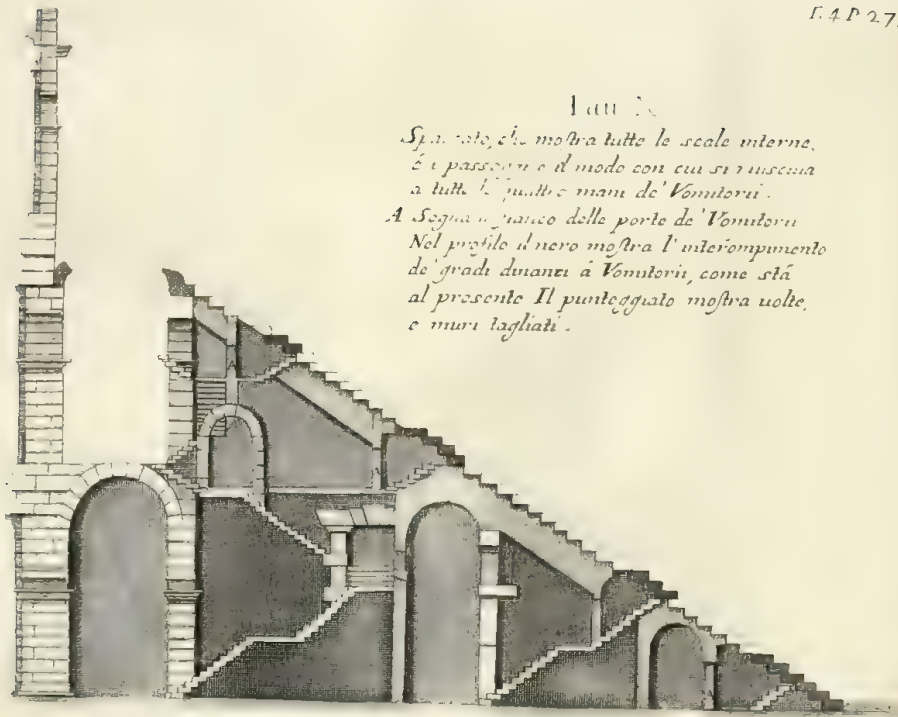 T. 4 P 27
Tau. X
Spaccato, che mostra tutte le scale interne,
è i passaggi e il modo con cui si riusciua
a tutte le quattro mani de' Vomitorii.
A Segna il fianco delle porte de' Vomitorii
Nel profilo il nero mostra l'interompimento
de' gradi dinanzi à Vomitorii, come stá
al presente Il punteggiato mostra uolte,
e muri tagliati.